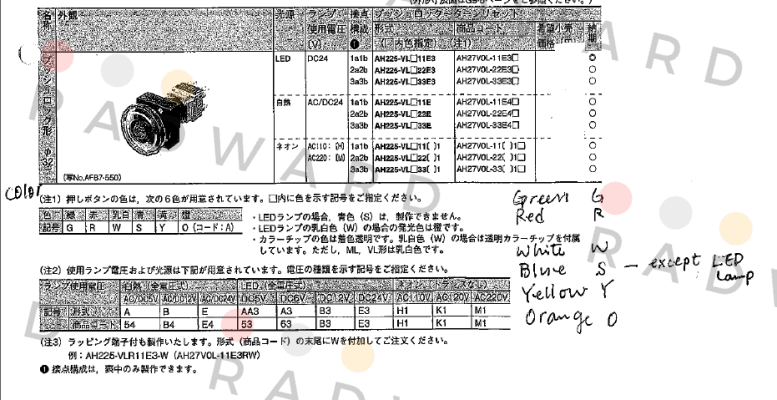 名称 外観 光源 ランプ使用電圧 (V) 接点構成❶ プッシュロックターンリセット
形式 (□内色指定) 商品コード (注1) 希望小売価格 納期
プッシュロック形 φ32
LED DC24 1a1b AH225-VL□11E3 AH27V0L-11E3□ ◎
2a2b AH225-VL□22E3 AH27V0L-22E3□ ○
3a3b AH225-VL□33E3 AH27V0L-33E3□ ○
白熱 AC/DC24 1a1b AH225-VL□11E AH27V0L-11E4□ ○
2a2b AH225-VL□22E AH27V0L-22E4□ ○
3a3b AH225-VL□33E AH27V0L-33E4□ ○
ネオン AC110: (H) 1a1b AH225-VL□11( ) AH27V0L-11( )□ ○
AC220: (M) 2a2b AH225-VL□22( ) AH27V0L-22( )□ ○
3a3b AH225-VL□33( ) AH27V0L-33( )□ ○
(写No.AF87-550)
color
(注1) 押しボタンの色は、次の6色が用意されています。□内に色を示す記号をご指定ください。
色 緑 赤 乳白 青 黄 橙
記号 G R W S Y O (コード:A)
・LEDランプの場合、青色 (S) は、製作できません。
・LEDランプの乳白色 (W) の場合の発光色は橙です。
・カラーチップの色は着色透明です。乳白色 (W) の場合は透明カラーチップを付属
しています。ただし、ML、VL形は乳白色です。
Green G
Red R
White W
Blue S – except LED
lamp
Yellow Y
Orange O
(注2) 使用ランプ電圧および光源は下記が用意されています。電圧の種類を示す記号をご指定ください。
ランプ使用電圧 白熱 (全電圧式) LED (全電圧式) ネオン (トランスなし)
AC/DC6V AC/DC12V AC/DC24V DC5V DC6V DC12V DC24V AC110V AC120V AC220V
記号 形式 A B E AA3 A3 B3 E3 H1 K1 M1
商品コード 54 B4 E4 53 63 B3 E3 H1 K1 M1
(注3) ラッピング端子付も製作いたします。形式 (商品コード) の末尾にWを付加してご注文ください。
例:AH225-VLR11E3-W (AH27V0L-11E3RW)
❶ 接点構成は、表中のみ製作できます。
RADWARD
RADWARD
RADWARD